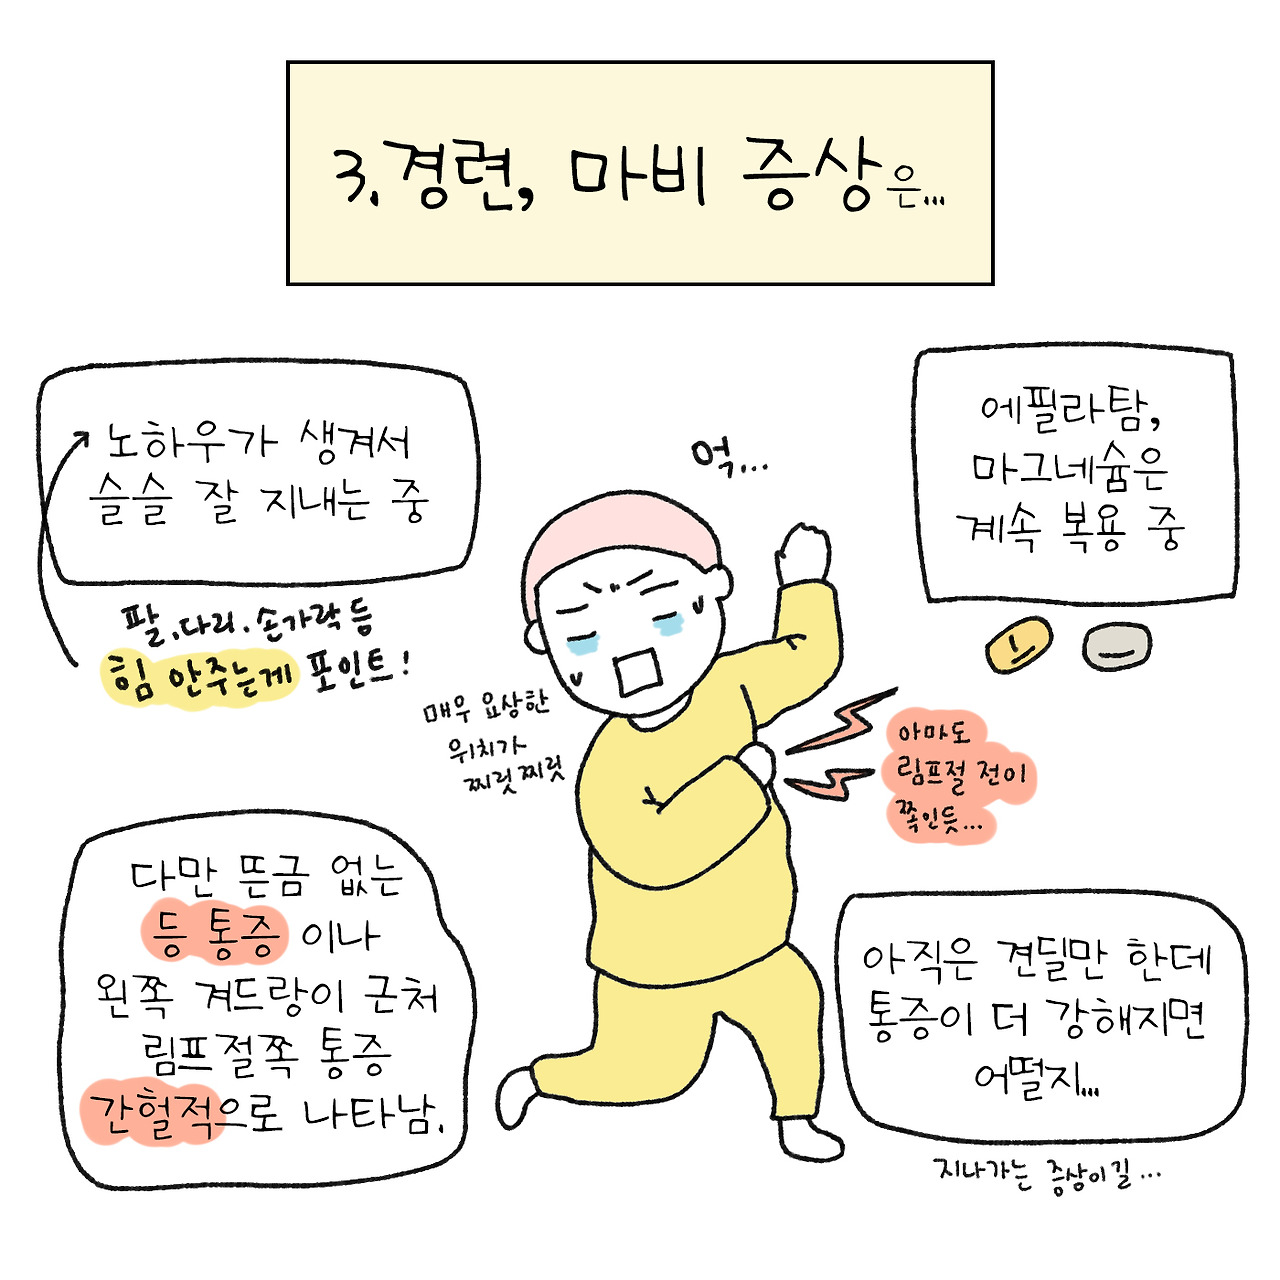 3.경련, 마비 증상은...
노하우가 생겨서
슬슬 잘 지내는 중
팔.다리.손가락 등
힘 안주는게 포인트!
에필라탐,
마그네슘은
계속 복용 중
억...
매우 요상한
위치가
찌릿찌릿
아마도
림프절 전이
쪽인듯...
다만 뜬금 없는
등 통증 이나
왼쪽 겨드랑이 근처
림프절쪽 통증
간헐적으로 나타남.
아직은 견딜만 한데
통증이 더 강해지면
어떨지...
지나가는 증상이길...